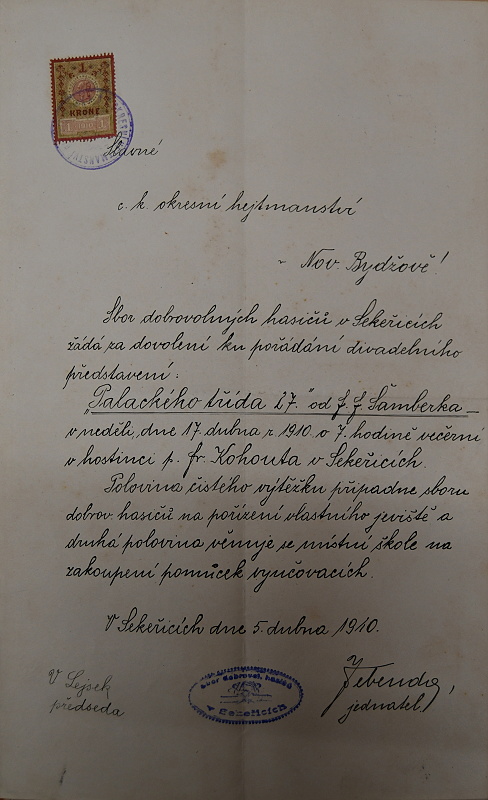 1
KRONE
1 1910 1
Slavné
c. k. okresní hejtmanství
v Nov. Bydžově!
Sbor dobrovolných hasičů v Sekeřicích
žádá za dovolení ku pořádání divadelního
představení:
"Palackého třída 27." od F. F. Šamberka –
v neděli, dne 17. dubna r. 1910 o 7. hodině večerní
v hostinci p. Fr. Kohouta v Sekeřicích.
Polovina čistého výtěžku připadne sboru
dobrov. hasičů na pořízení vlastního jeviště a
druhá polovina věnuje se místní škole na
zakoupení pomůcek vyučovacích.
V Sekeřicích dne 5. dubna 1910.
V Lejsek
předseda
Sbor dobrovol. hasičů
v Sekeřicích
jednatel,